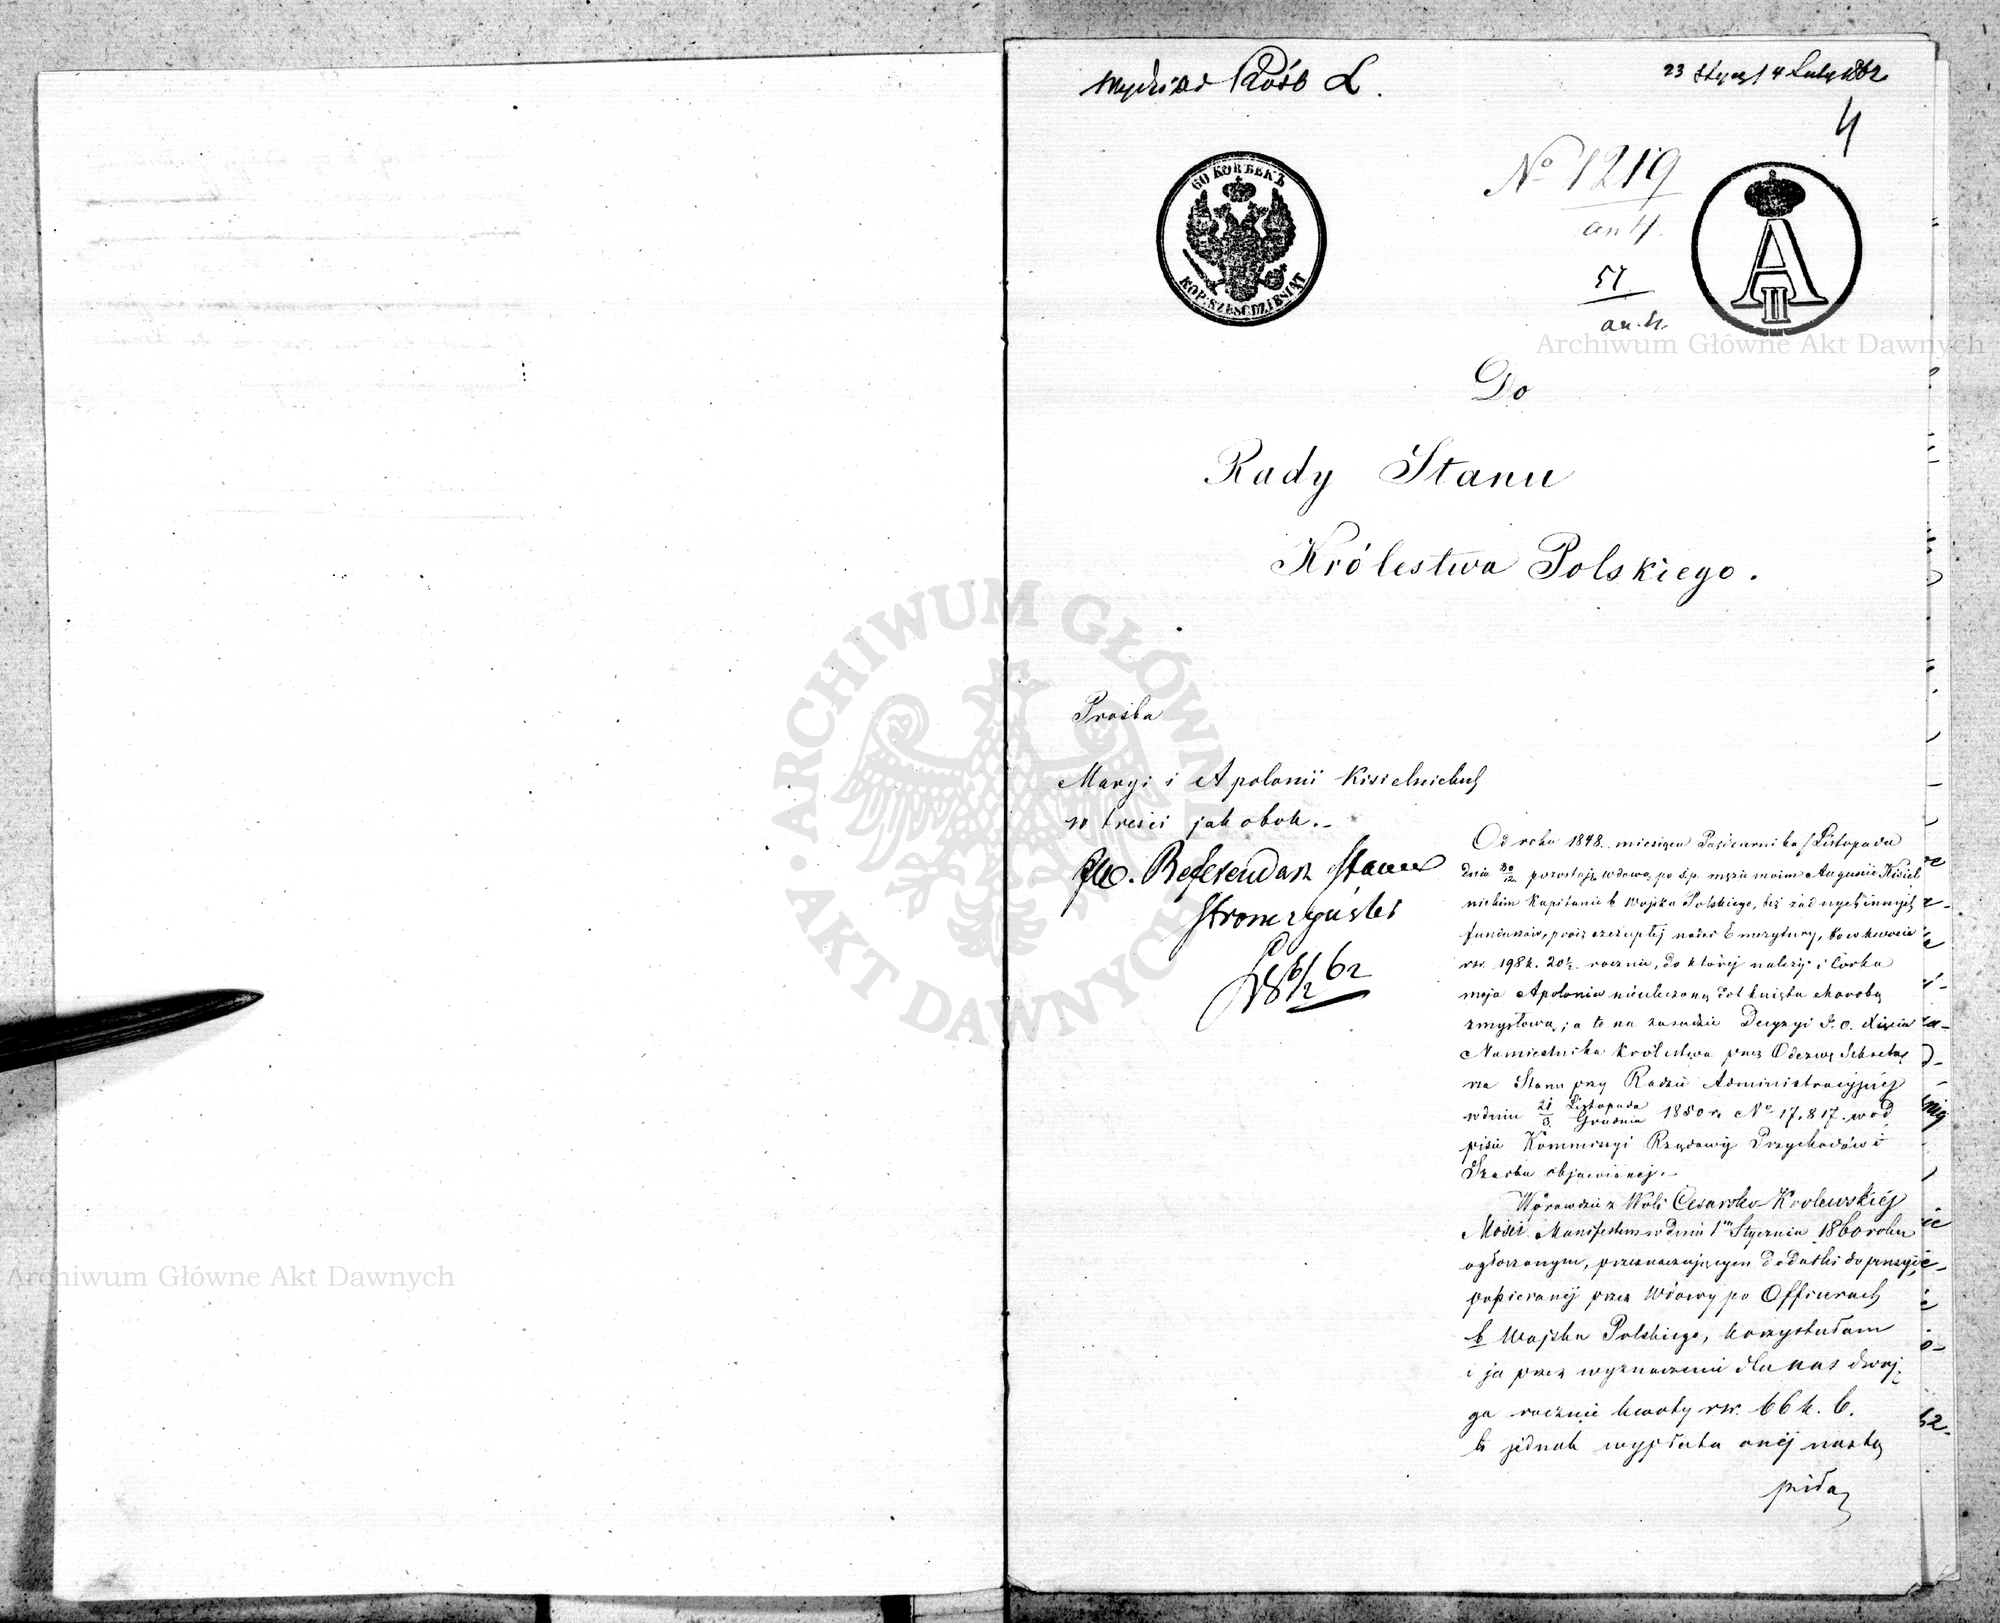 Wydział Próśb L.
23 Stycz/4 Luty 1862
4
60 КОПѢЕКЪ
KOP: SZEŚĆDZIESIĄT
No 1219
an 4.
51
an. 4.
A II
Archiwum Główne Akt Dawnych
Do
Rady Stanu
Królestwa Polskiego.
ARCHIWUM GŁÓWNE AKT DAWNYCH
Prośba
Maryi i Apolonii Kisielnickich
w treści jak obok.-
Referendarz Stanu
Stronczyński
D 6/2 62
Od roku 1848. miesiąca Pazdziernika/Listopada
dnia 30/12 pozostaję wdową po ś.p. mężu moim Auguście Kisiel
nickim Kapitanie b Wojska Polskiego, bez żadnych innych
funduszów, prócz szczupłej nader Emerytury, bo w kwocie
rsr. 198 k. 20½ rocznie, do której należy i Córka
moja Apolonia nieuleczoną dotknięta chorobą
zmysłową; a to na zasadzie Decyzyi J. O. Xięcia
Namiestnika Królestwa przez Odezwę Sekreta
rza Stanu przy Radzie Administracyjnej
w dniu 21 Listopada/3 Grudnia 1850 r. No 17,817. w od
pisie Kommissyi Rządowej Przychodów i
Skarbu objawionej.-
Wprawdzie z Woli Cesarsko-Królewskiej
Mości Manifestem w dniu 1m Stycznia 1860 roku
ogłoszonym, przeznaczającym dodatki do pensyi
popieranej przez Wdowy po Officerach
b Wojska Polskiego, korzystałam
i ja przez wyznaczenie dla nas dwoj-
ga rocznie kwoty rsr. 66 k. 6.
to jednak wypłata onej nastą
piła
Archiwum Główne Akt Dawnych